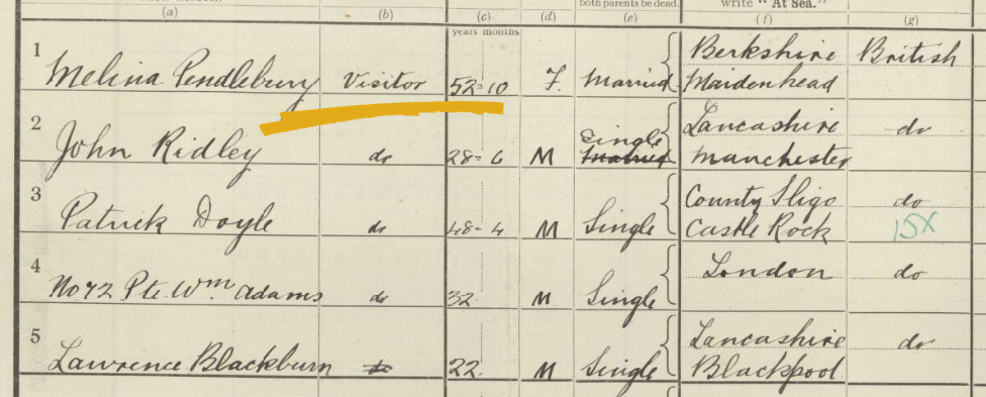 both parents be dead. write "At Sea."
(a) (b) (c) (d) (e) (f) (g)
years months
1 Berkshire British
Melina Pendlebury Visitor 52-10 F. Married Maidenhead
2 Single Lancashire do
John Ridley do 28-6 M Married Manchester
3 County Sligo do
Patrick Doyle do 48-4 M Single Castle Rock 15X
4 London do
No 72 Pte. Wm. Adams do 32 M Single
5 Lancashire do
Lawrence Blackburn do 22 M Single Blackpool